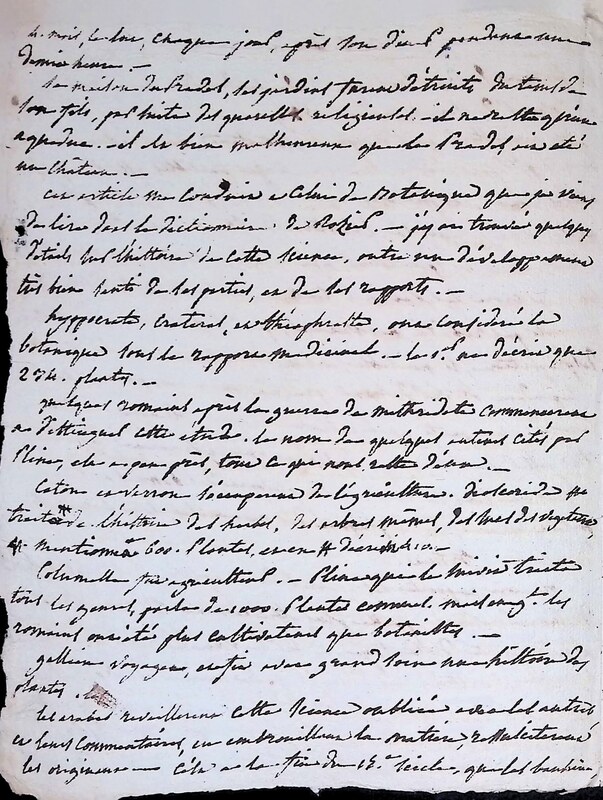 le mois, le lac, chaque jour, après son diner pendant une
demie heure. —
la maison du Pradel, les jardins furent détruits du tems de
son fils, par suite des querelles religieuses. — il ne reste qu'un
aqueduc. — il est bien malheureux que le Pradel, ait été
un château. —
cet article me conduit a celui de Botanique que je viens
de lire dans le dictionnaire de Rozier. — j'y ai trouvé quelques
détails sur l'histoire de cette science, outre un développement
très bien senti de ses parties, et de ses rapports. —
hyppocrate, crateras, et théophraste, ont considéré la
botanique sous le rapport medicinal. — le 1.er ne décrit que
234. plantes. —
quelques romains après la guerre de mithridate commencerent
a distinguer cette étude. le nom de quelques auteurs cités par
Pline, est a peu près, tout ce qui nous reste d'eux. —
Caton et Varron s'occuperent de l'agriculture. dioscoride
traite de l'histoire des herbes, des arbres mêmes, des sucs des végétaux,
mentionne 600. Plantes, et en décrit 410. —
Columelle fut agriculteur. — Pline qui le suivit traita
tous les genres, parle de 1000. Plantes connues. mais en gl. les
romains ont été plus cultivateurs que botanistes. —
gallien voyagea, et fit avec grand soin une histoire des
plantes.
les arabes reveillerent cette science oubliée avec les autres
et leurs commentaires, en embrouillant la matière,
les origines — c'est a la fin du 15.e siècle, que les